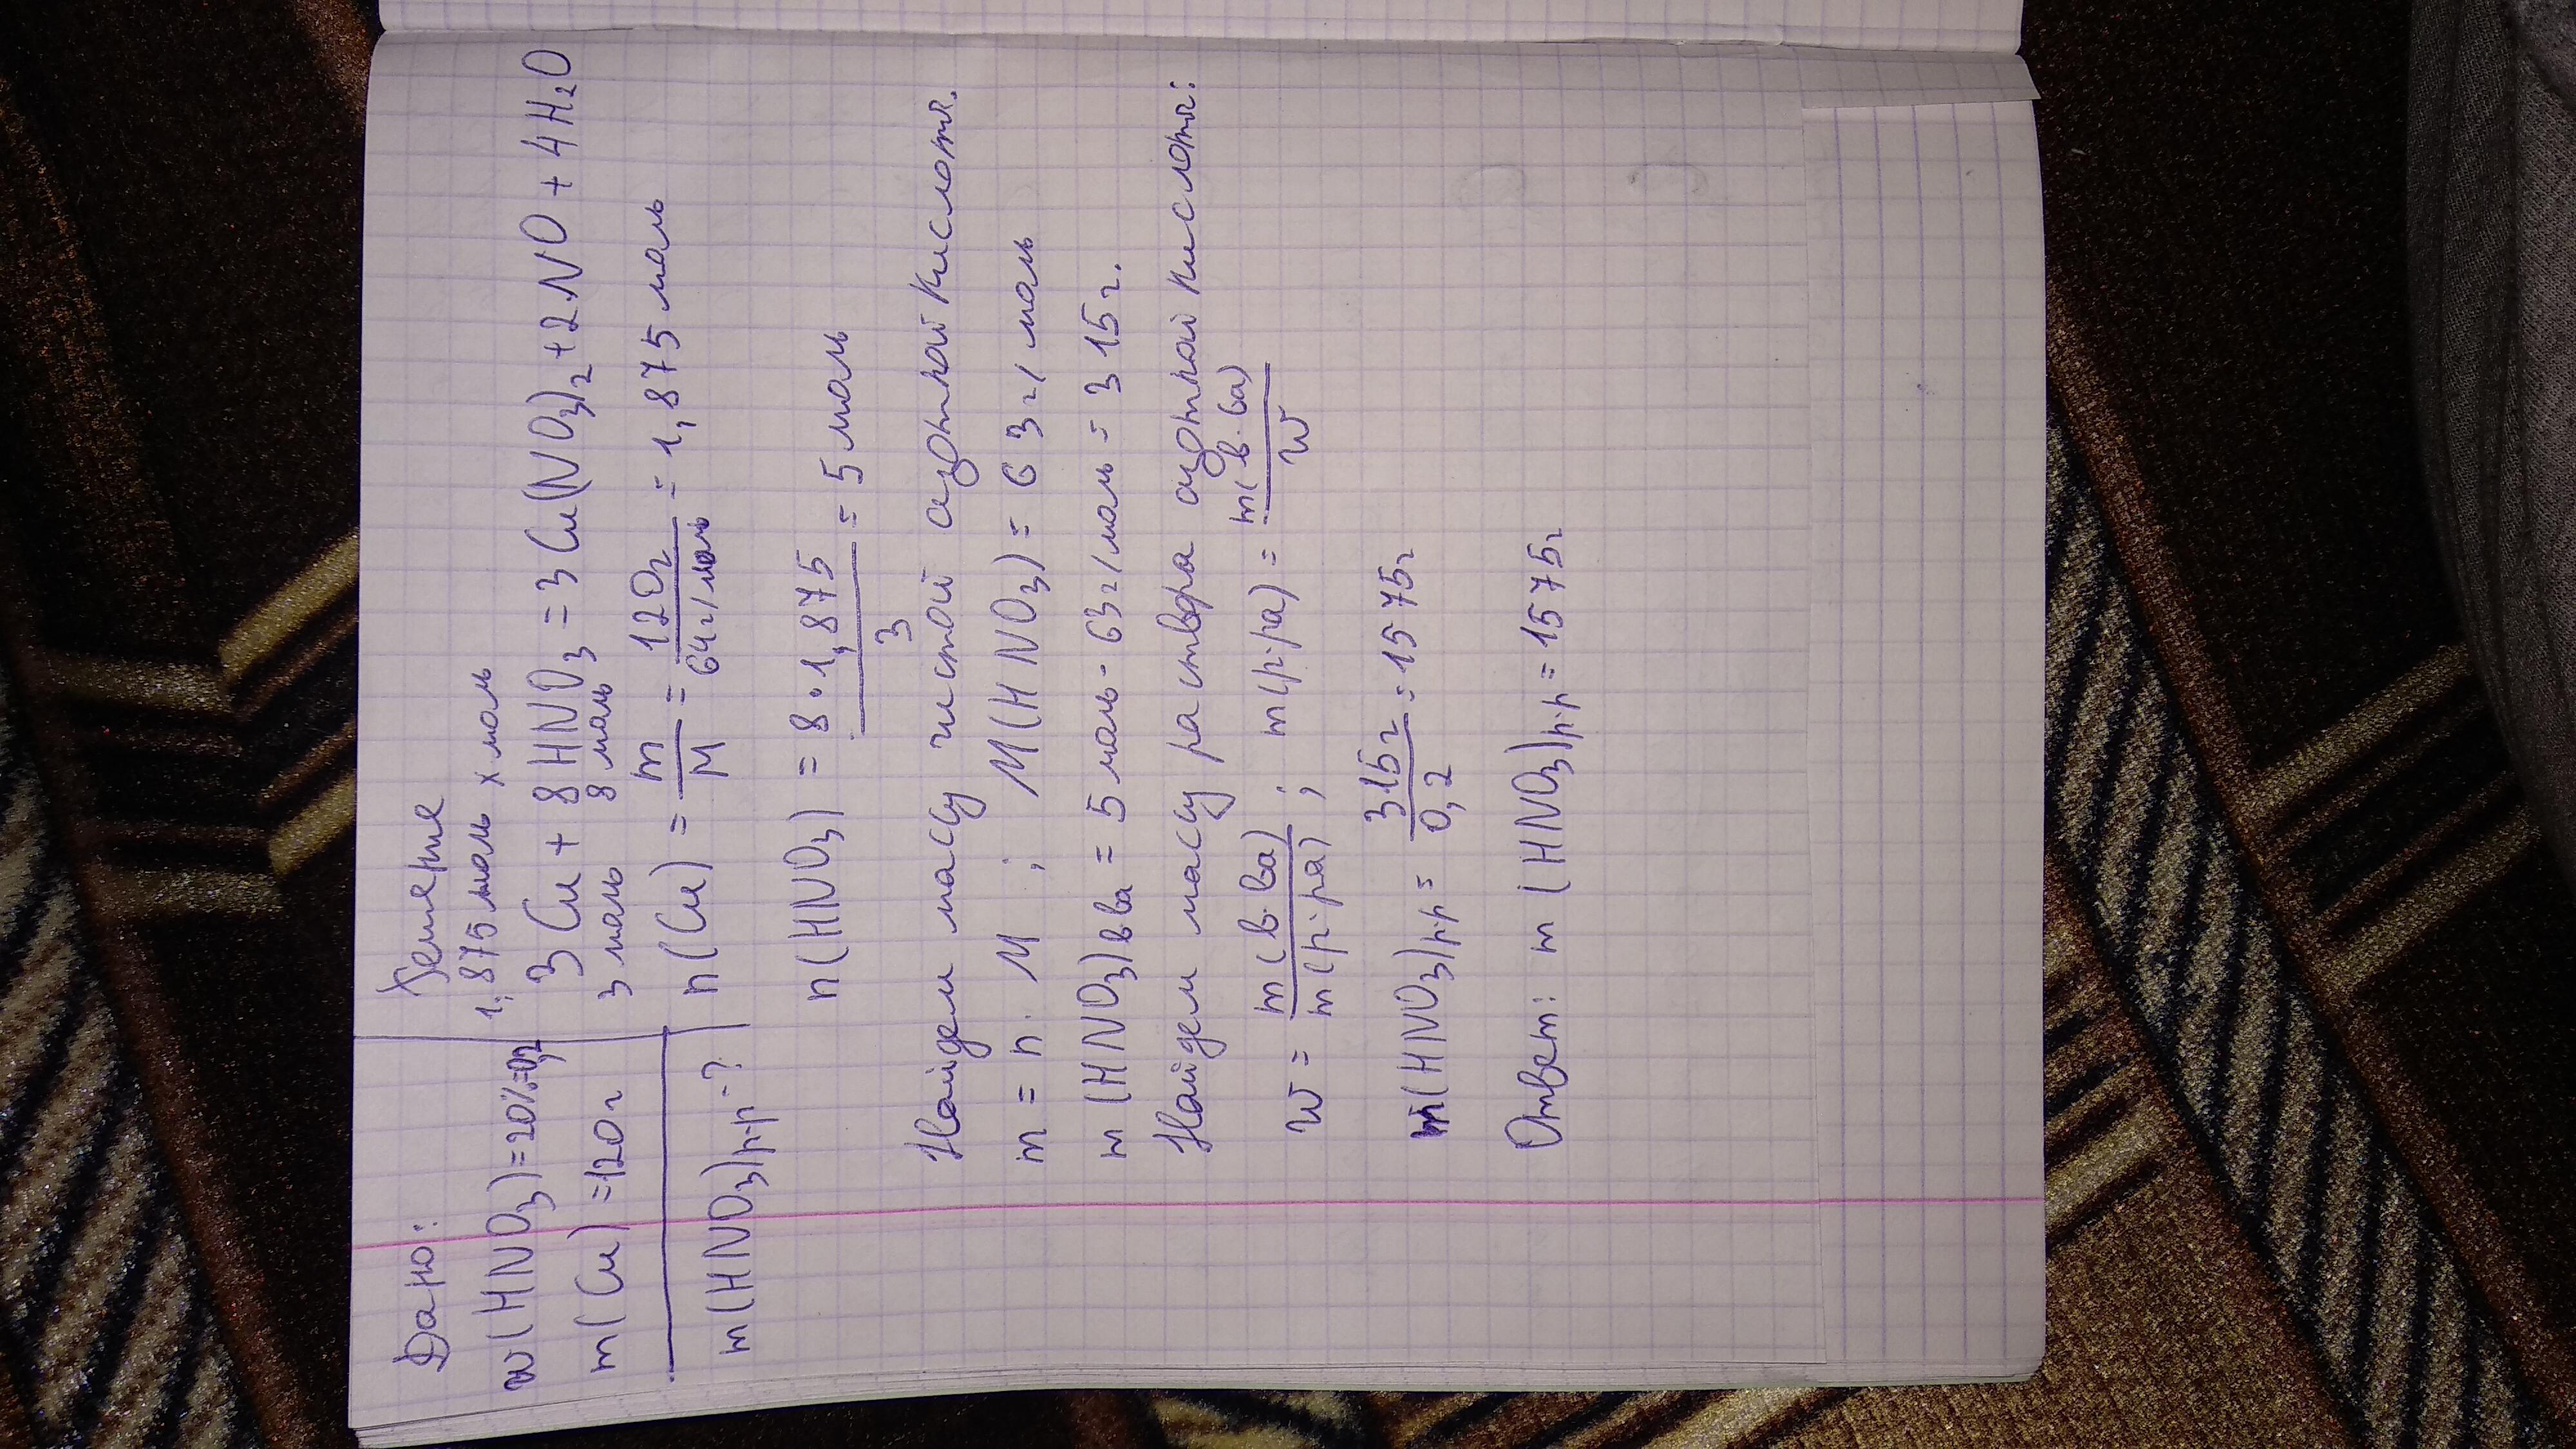 Дано:
w(HNO₃)=20%=0,2
m(Cu)=120г
m(HNO₃)р-р-?
Решение
1,875моль х моль
3Cu + 8HNO₃ = 3Cu(NO₃)₂ + 2NO + 4H₂O
3 моль 8 моль
n(Cu) = m/M = 120г/64г/моль = 1,875 моль
n(HNO₃) = 8•1,875/3 = 5 моль
Найдем массу чистой азотной кислоты.
m = n · M ; M(HNO₃) = 63г/моль
m (HNO₃)в ва = 5 моль · 63г/моль = 315г.
Найдем массу раствора азотной кислоты:
W = m(в-ва)/m(р-ра) ; m(р-ра) = m(в-ва)/W
m(HNO₃)р-р = 315г/0,2 = 1575г
Ответ: m (HNO₃)р-р = 1575г